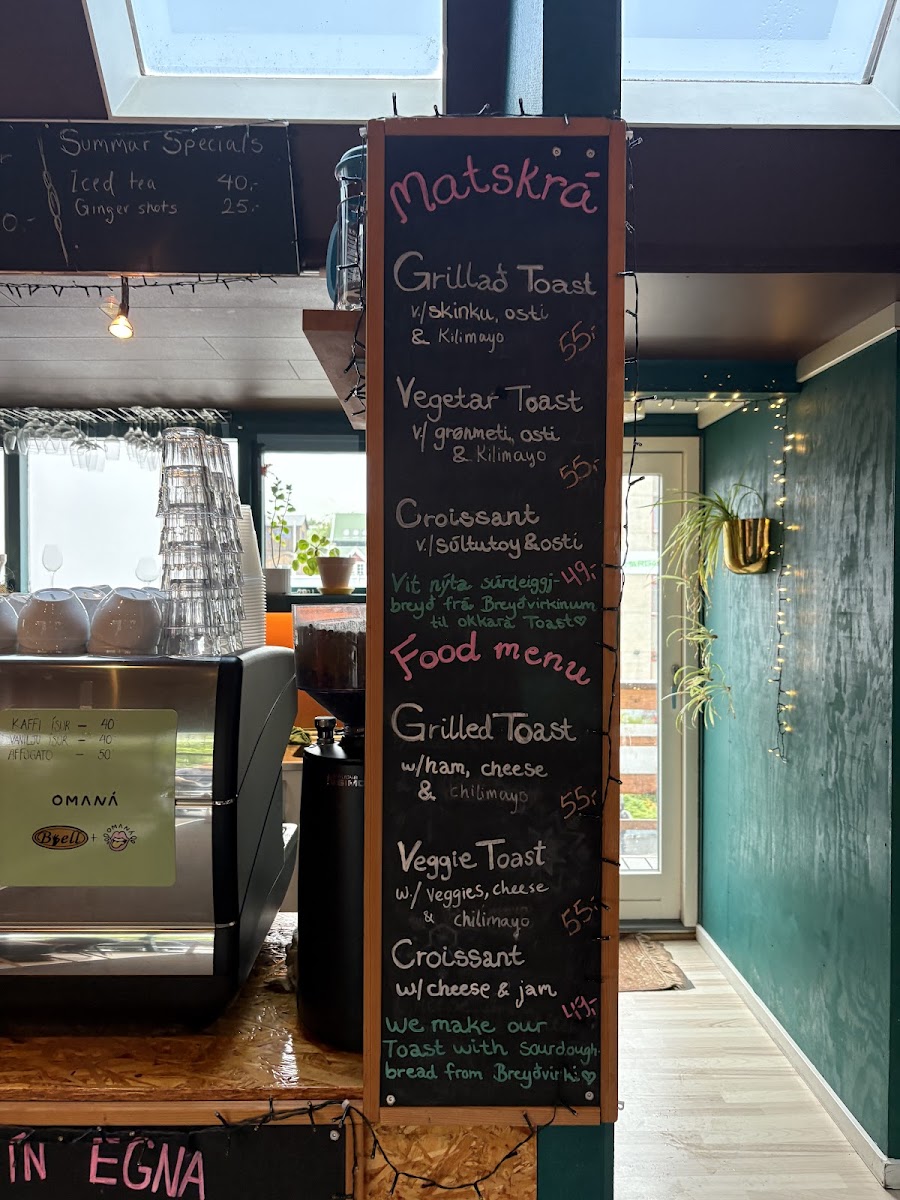 Summar Specials
Iced tea 40,-
Ginger shots 25.-
Matskrá
Grillað Toast
v/skinku, osti
& Kilimayo
55,-
Vegetar Toast
v/ grønmeti, osti
& Kilimayo
55,-
Croissant
v/súltutoy & osti
49,-
Vit nýta súrdeiggj-
breyð frá Breyðvirkinum
til okkara Toast♡
Food menu
Grilled Toast
w/ham, cheese
& chilimayo
55,-
Veggie Toast
w./ veggies, cheese
& chilimayo
55,-
Croissant
w/ cheese & jam
49,-
We make our
Toast with sourdough-
bread from Breyðvirki♡
KAFFI ÍSUR - 40
VANILJU ÍSUR - 40
AFFOGATO - 50
OMANÁ
Bell + OMANÁ
ÍN EGNA